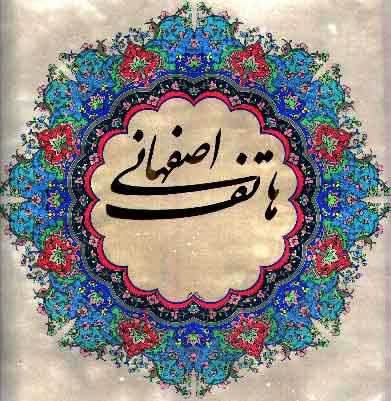 هاتف اصفهانی